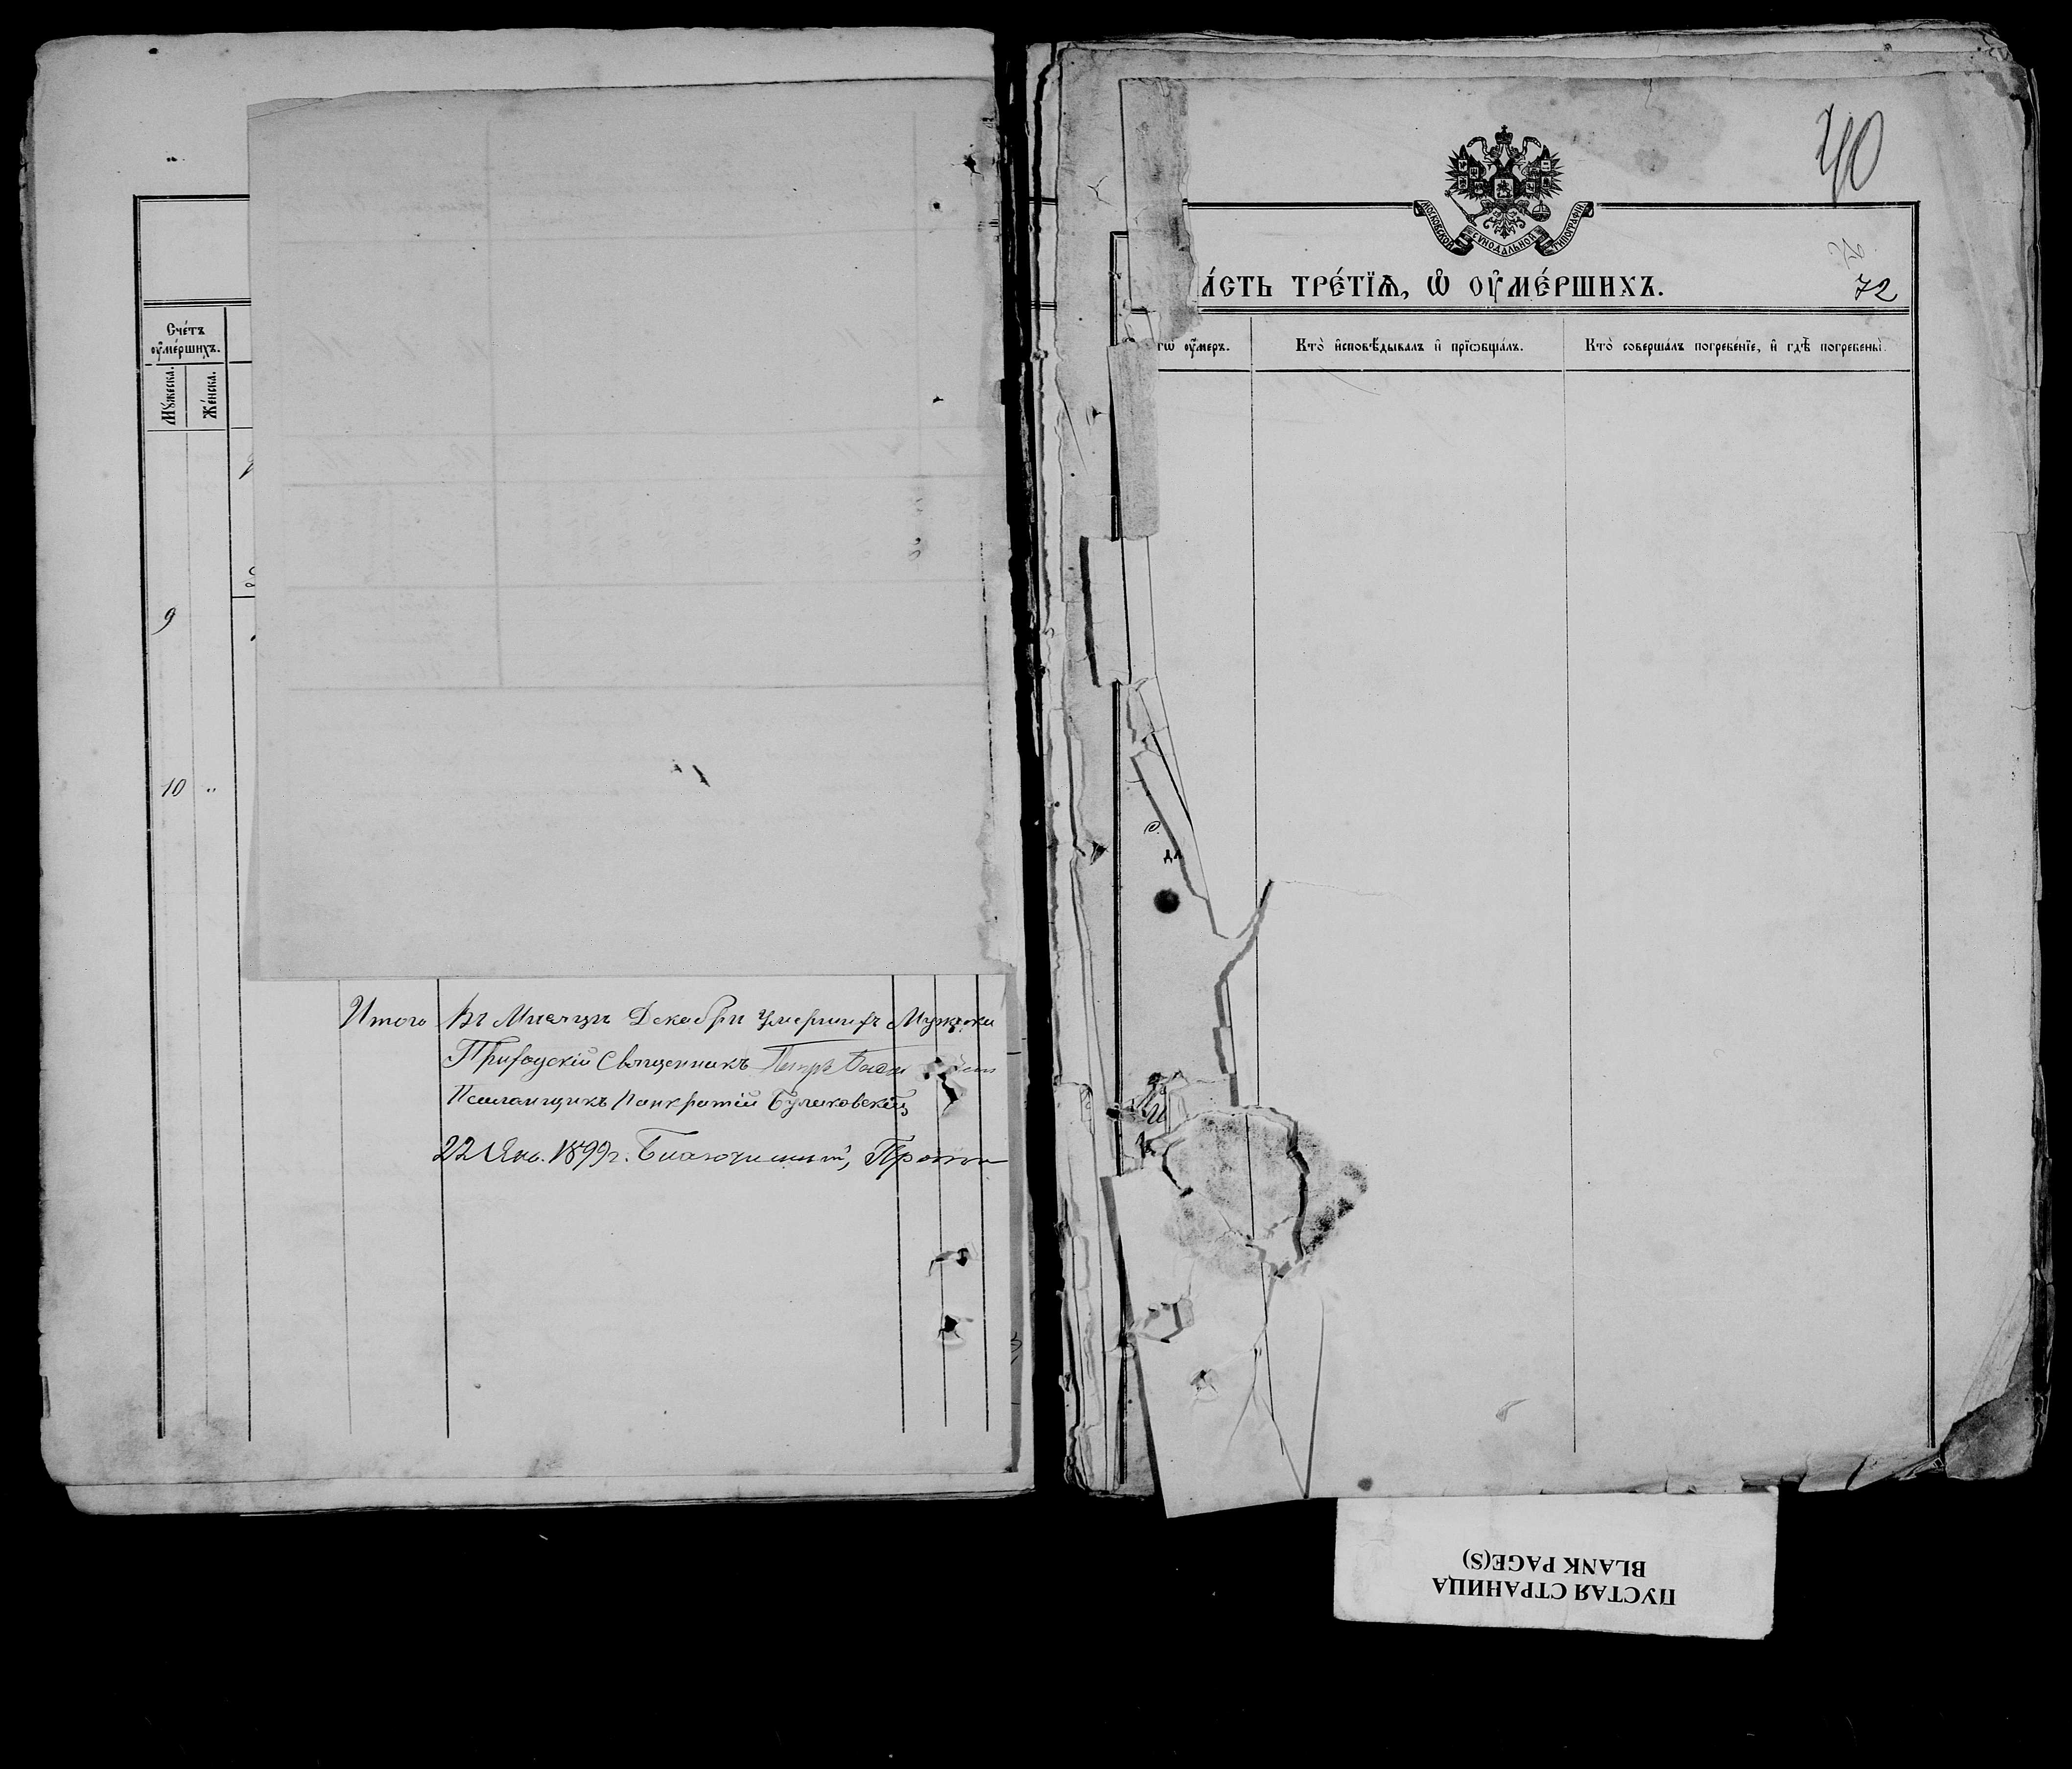 Счетъ
оумершихъ.
Мужеска.
Женска.
9
10 "
Итого Въ Мисяци Декабри Умершихъ Мужеска
Приходскій Священникъ Петръ
Псаломщикъ Панкратій Булаковскій
22 Янв. 1899 г.
40
МОСКОВСКОЙ СѴНОДАЛЬНОЙ ТИПОГРАФІИ
А́СТЬ ТРЕ́ТЇѦ, Ѡ҆ ОУ҆МЕ́РШИХЪ.
72
гѡ̀ оу҆́меръ.
Кто̀ и҆сповѣ́дывалъ и҆ прїѡбща́лъ.
Кто̀ соверша́лъ погребе́нїе, и҆ гдѣ̀ погребены̀.
ПУСТАЯ СТРАНИЦА
BLANK PAGE(S)